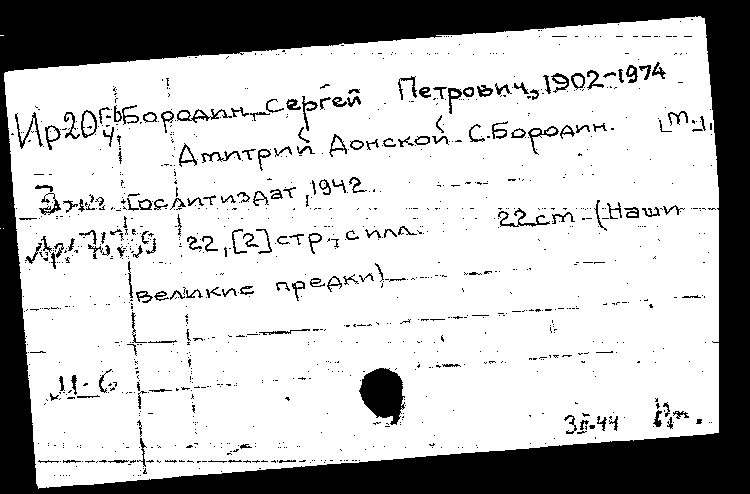 Бородин, Сергей Петрович, 1902-1974
Ир20
Дмитрий Донской. С. Бородин. [М.],
Гослитиздат, 1942.
22, [2] стр., с илл. 22 cm (Наши
великие предки)
М-6
3II-44